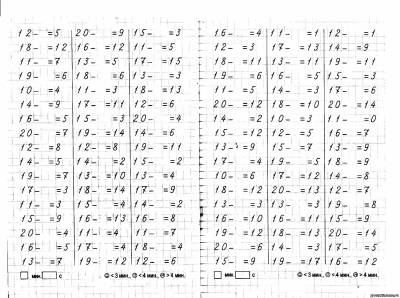 12- =5 20- =9 15- =3
18- =12 16- =12 11- =5
11- =7 13- =5 17- =15
19- =6 18- =6 13- =3
10- =4 11- =3 18- =13
14- =9 17- =11 12- =6
16- =5 15- =3 20- =4
20- =7 19- =14 14- =6
12- =8 12- =8 19- =11
14- =5 14- =2 15- =2
19- =7 13- =10 11- =4
17- =3 18- =14 17- =9
11- =3 15- =4 14- =2
15- =9 16- =13 16- =8
20- =4 11- =4 14- =7
16- =5 17- =4 18- =9
13- =7 19- =12 12- =6
мин. с <3 мин., <4 мин., >4 мин.
16- =4 11- =1 12- =1
12- =3 17- =13 14- =9
18- =11 13- =11 19- =13
19- =6 16- =5 15- =3
11- =5 18- =12 17- =6
20- =12 18- =10 20- =14
14- =2 10- =2 11- =0
15- =2 12- =5 16- =7
13- =9 15- =7 13- =9
17- =4 19- =5 18- =9
10- =6 17- =9 12- =8
18- =12 20- =12 14- =7
13- =5 20- =13 19- =8
16- =10 13- =11 15- =9
19- =12 18- =11 11- =5
20- =6 14- =9 17- =3
15- =7 19- =14 16- =12
мин. с <3 мин., <4 мин., >4 мин.